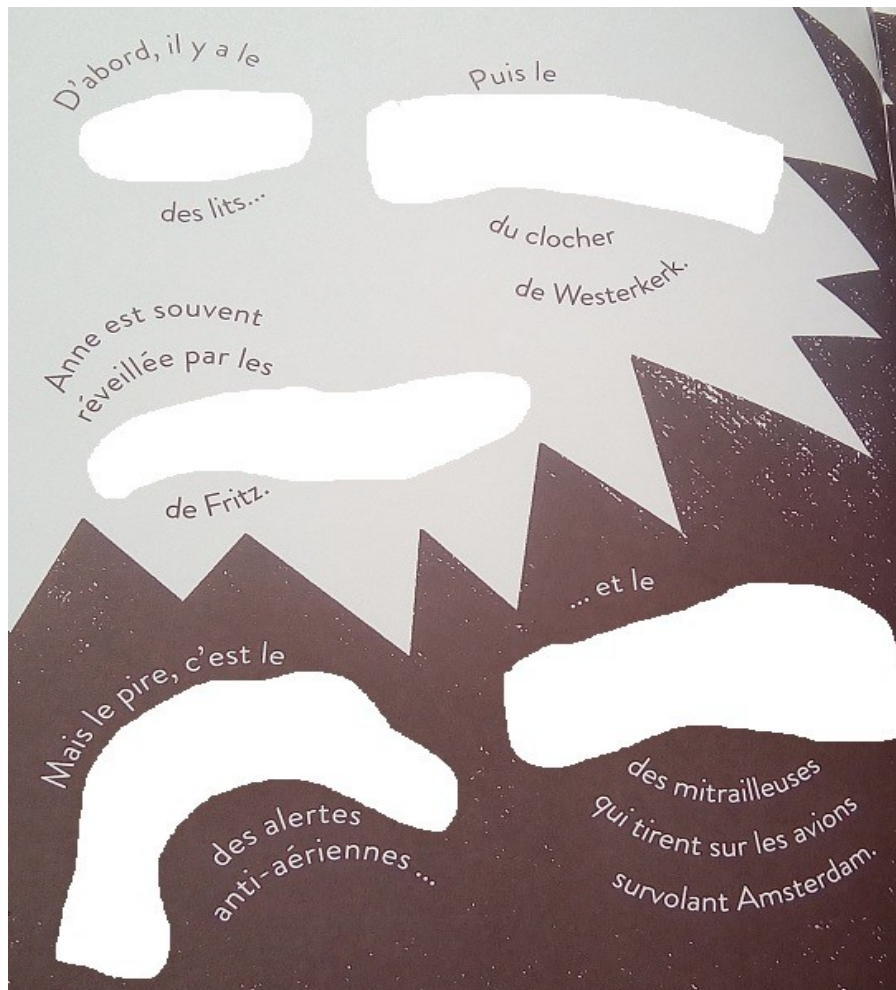 D'abord, il y a le
des lits...
Puis le
du clocher
de Westerkerk.
Anne est souvent
réveillée par les
de Fritz.
Mais le pire, c'est le
des alertes
anti-aériennes ...
... et le
des mitrailleuses
qui tirent sur les avions
survolant Amsterdam.